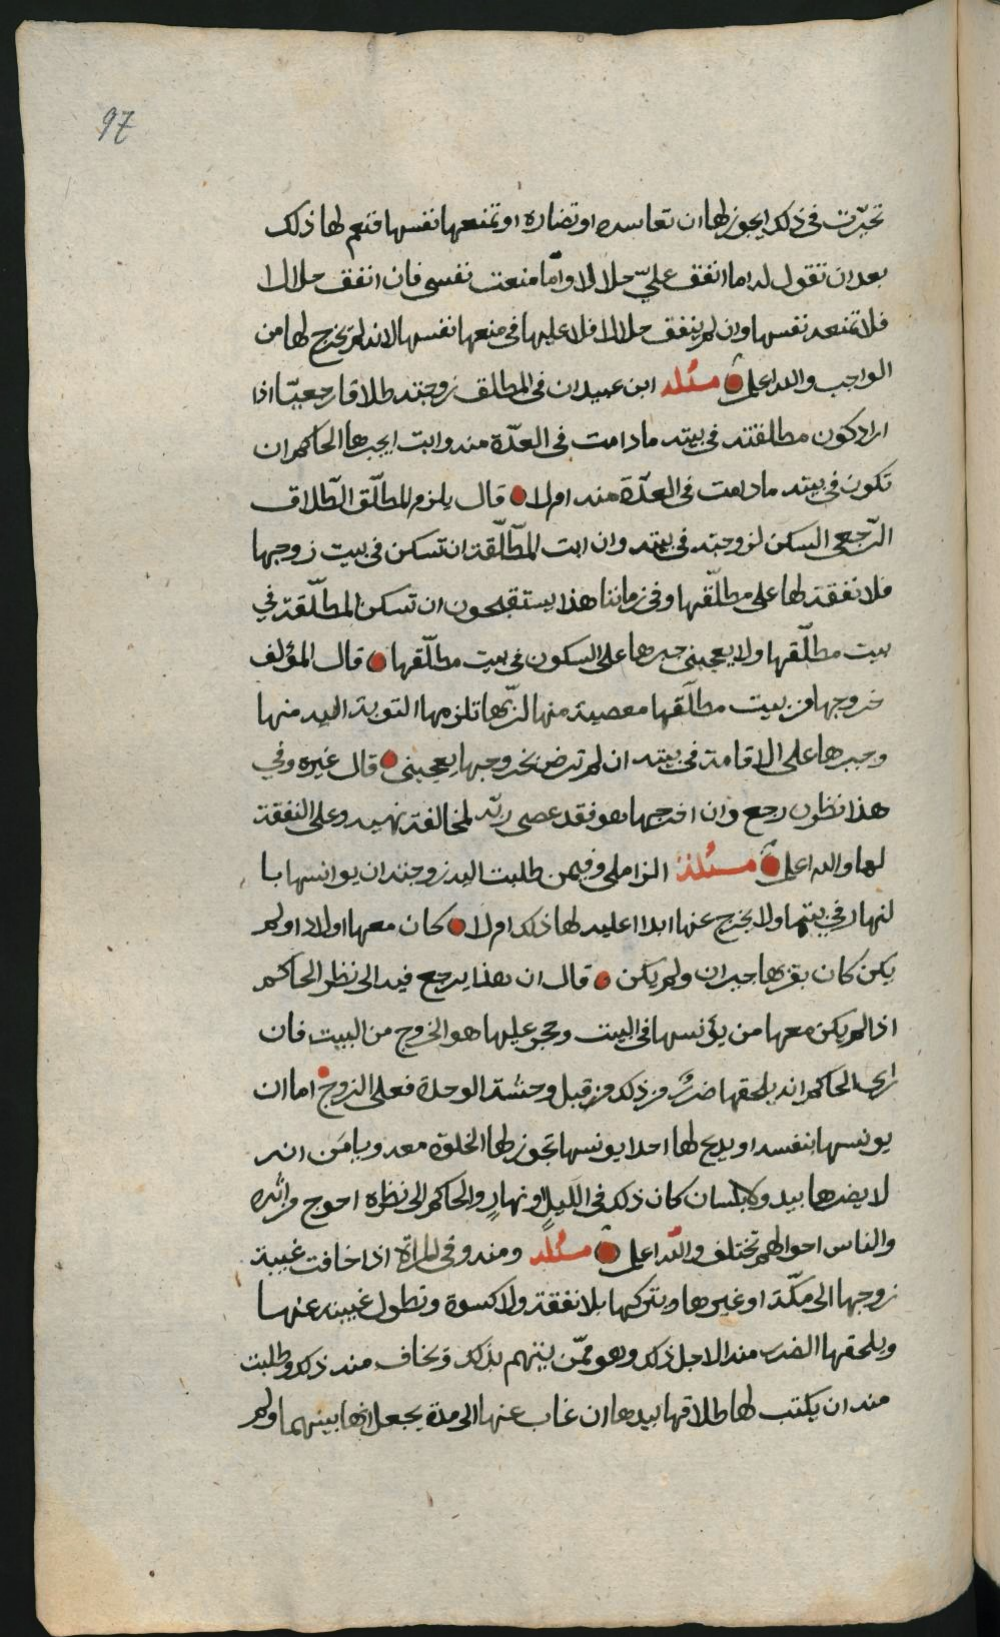 97
تحيرت في ذلك ايجوز لها ان تعاسره او تضاره او تمنعها نفسها فنعم لها ذلك
بعد ان تقول له اما انفق عليّ حلالا وامّا منعت نفسي فان انفق حلالا
فلا تمنعه نفسها وان لم ينفق حلالا فلا عليها في منعها نفسها لانه لم يخرج لها من
الواجب والله اعلم مسئلة ابن عبيدان في المطلق زوجته طلاقا رجعيّا اذا
اراد كون مطلقته في بيته ما دامت في العدّة منه وابت ايجبرها الحاكم ان
تكون في بيته ما دامت في العدّة منه ام لا قال يلزم المطلّق الطّلاق
الرّجعي السكن لزوجته في بيته وان ابت المطلّقة ان تسكن في بيت زوجها
فلا نفقة لها على مطلّقها وفي زماننا هذا يستقبحون ان تسكن المطلّقة في
بيت مطلّقها ولا يعجبني جبرها على السكون في بيت مطلّقها قال المؤلف
خروجها من بيت مطلّقها معصية منها لربّها تلزمها التوبة اليه منها
وجبرها على الاقامة في بيته ان لم ترض بخروجها يعجبني قال غيره وفي
هذا نظر رجع وان اخرجها هو فقد عصى ربّه لمخالفة نهيه وعلى النفقة
لها والله اعلم مسئلة الزاملي وفيمن طلبت اليه زوجته ان يوانسها با
لنهار في بيتها ولا يخرج عنها ابدا اعليه لها ذلك ام لا كان معها اولاد او لم
يكن كان بقربها جيران ولم يكن قال ان هذا يرجع فيه الى نظر الحاكم
اذا لم يكن معها من يؤنسها في البيت وحجر عليها هو الخروج من البيت فان
راى الحاكم انه يلحقها ضرر من ذلك من قبل وحشة الوحدة فعلى الزوج اما ان
يونسها بنفسه او يدع لها احدا يونسها تجوز لها الخلوة معه ويامن انه
لا يضرها بيد ولا بلسان كان ذلك في الليل او نهار والحاكم الى نظره احوج من اثره
والناس احوالهم تختلف والله اعلم مسئلة ومنه وفي المراة اذا خافت غيبة
زوجها الى مكّة او غيرها ويتركها بلا نفقة ولا كسوة وتطول غيبته عنها
ويلحقها الضرر منه لاجل ذلك وهو ممّن يتهم بذلك ويخاف منه ذلك وطلبت
منه ان يكتب لها طلاقها بيدها ان غاب عنها الى مدة يجعلانها بينهما ولم